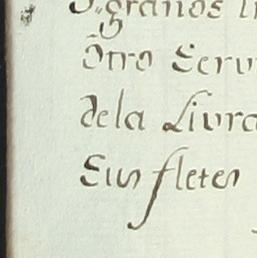 granos
Otro Serv
dela Livra
Sus fletes